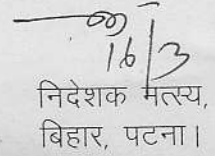 16/3
निदेशक मत्स्य,
बिहार, पटना।